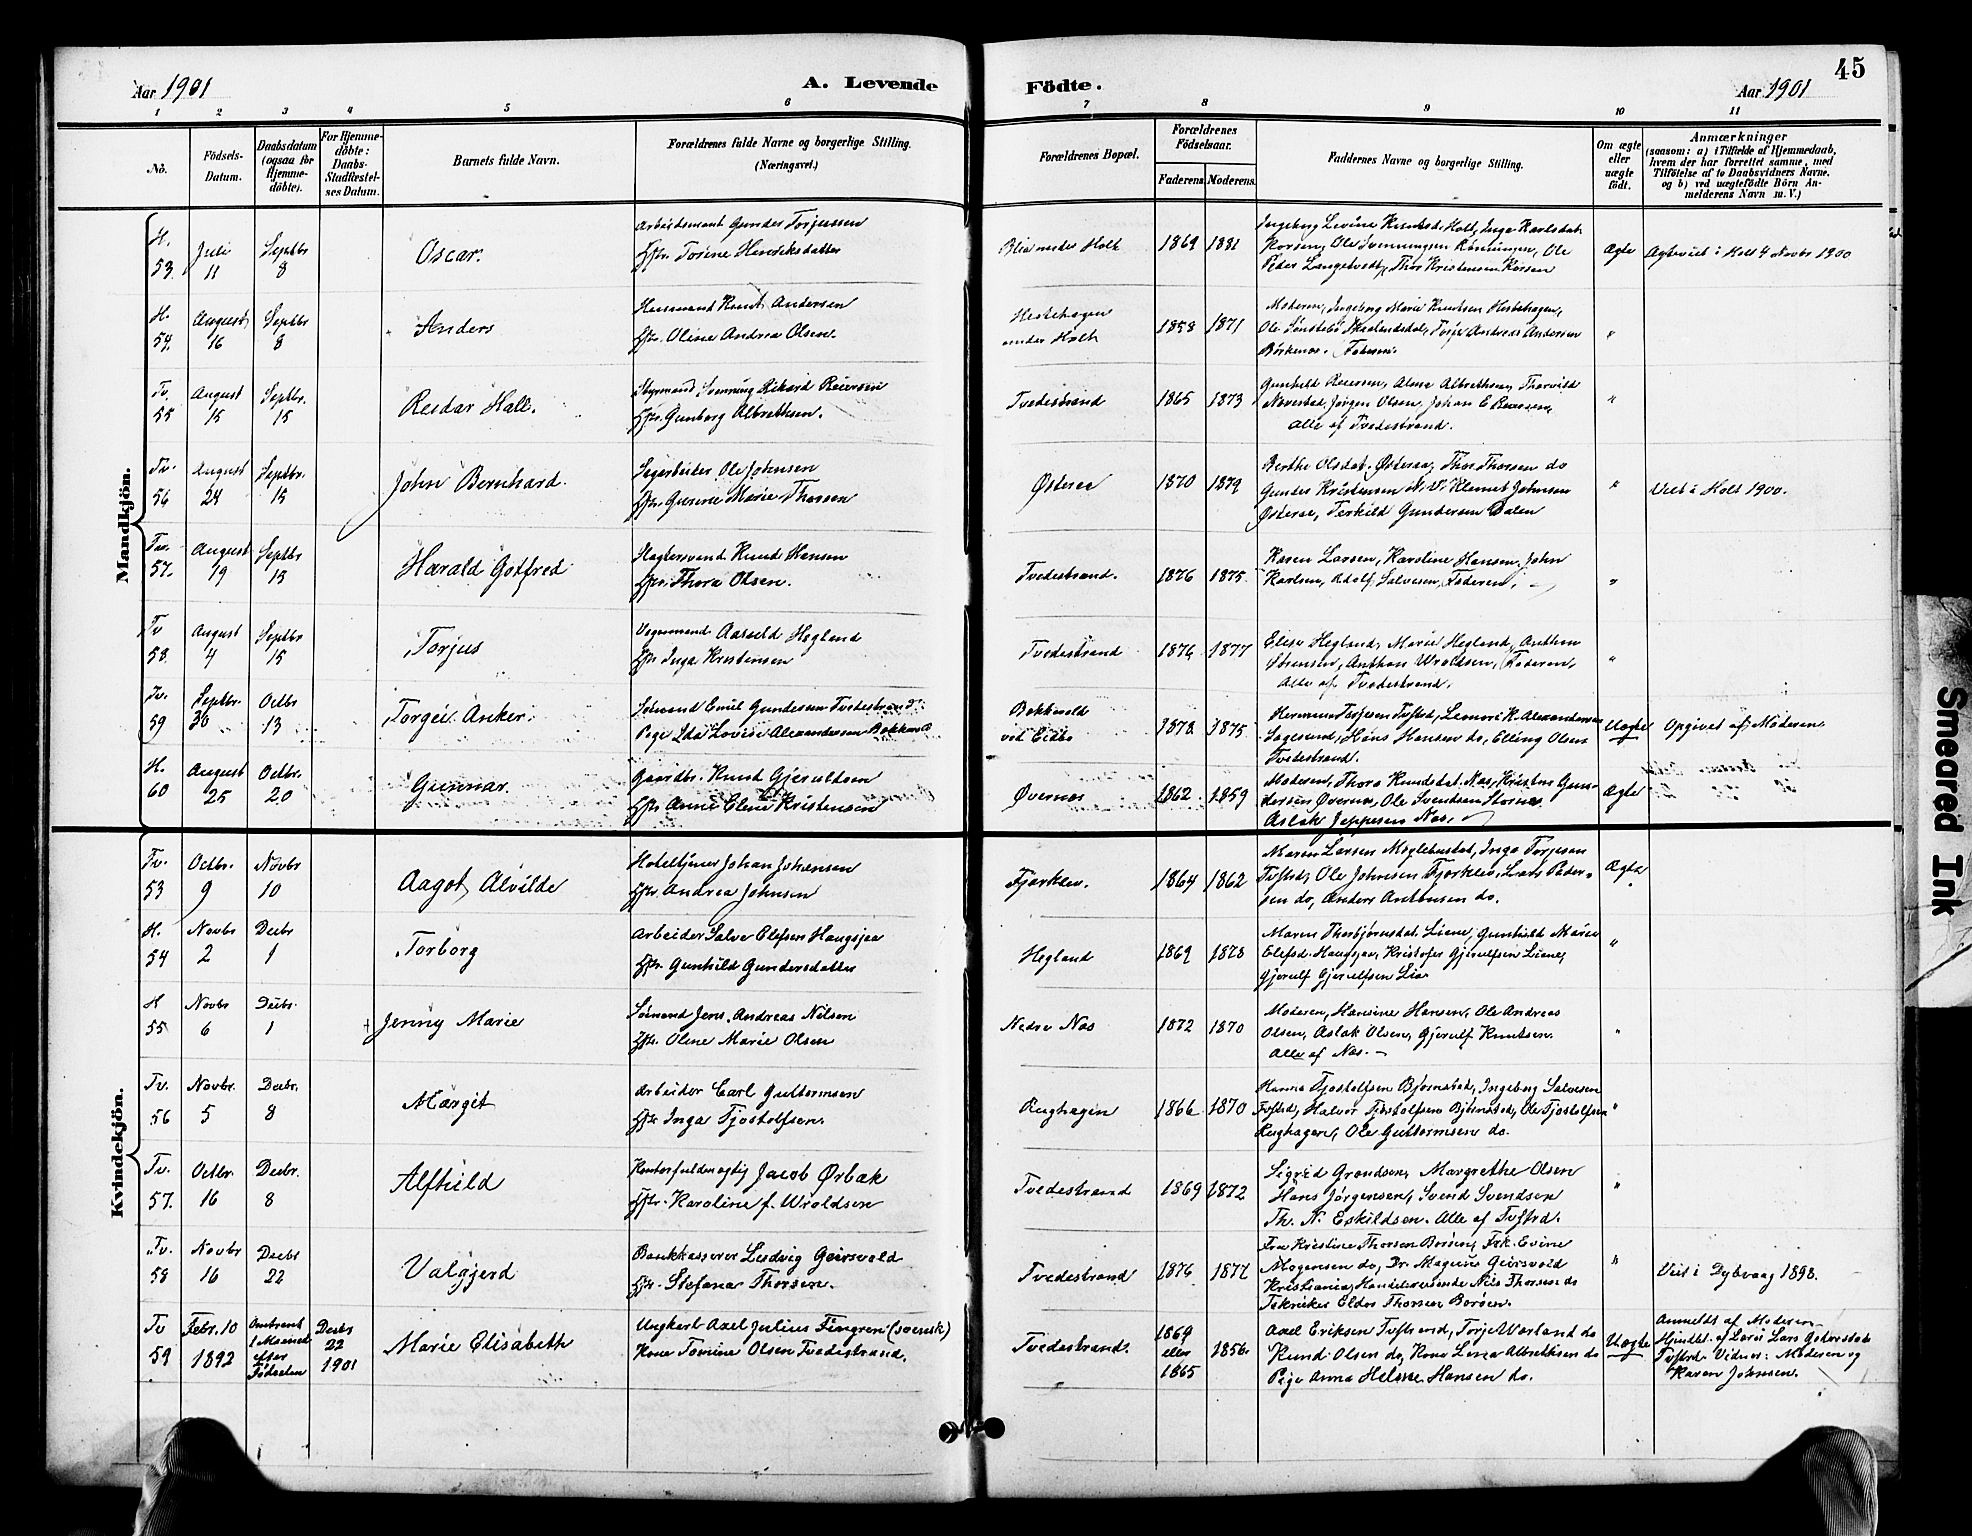 Aar 1901
A. Levende
Födte.
Aar 1901
45
1 2 3 4 5 6 7 8 9 10 11
No.
Födsels-
Datum.
Daabsdatum
(ogsaa for
Hjemme-
döbte).
For Hjemme-
döbte:
Daabs-
Stadfæstel-
ses Datum.
Barnets fulde Navn.
Forældrenes fulde Navne og borgerlige Stilling.
(Næringsvei.)
Forældrenes Bopæl.
Forældrenes
Födselsaar.
Faderens. Moderens.
Faddernes Navne og borgerlige Stilling.
Om ægte
eller
uægte
födt.
Anmærkninger
(saasom: a) i Tilfælde af Hjemmedaab,
hvem der har forrettet samme, med
Tilföielse af to Daabsvidners Navne,
og b) ved uægtefödte Börn An-
melderens Navn m. V.)
Mandkjön.
H.
53.
Juli
11
Septbr
8
Oscar.
Arbeidsmand Gunder Torjussen
Hstr. Torine Henriksdatter
under Holt
1869
1881
Ole
Peder Langetvedt, Thor Kristensen Korsen
Ægte
Ægteviet i Holt 4 Novbr 1900
H.
54.
August
16
Septbr
8
Anders
Husmand Knut Andersen
Hstr. Oline Andrea Olsen.
Hestehagen
under Holt
1858
1871
Moderen, Ingeborg Marie Knudsen Hestehagen,
Terje Andreas Andersen
Faderen.
"
Tv.
55
August
15
Septbr.
15
Reidar Hall.
Styrmand Svenning Rikard Reiersen
Hstr. Gunborg Albrethsen.
Tvedestrand
1865
1873
Gunhild Reiersen, Alma Albrethsen, Thorvild
Naverstad, Jörgen Olsen, Johan E Reiersen,
Alle af Tvedestrand.
"
Tv.
56
August
24
Septbr.
15
John Bernhard.
Sagarbeider Ole Johnsen
Hstr. Gusine Marie Thorsen
Østeraa
1870
1879
Berthe Olsdat. Østeraa, Thor Thorsen do
Gunder Kristensen N. V. Klemet Johnsen
Østeraa, Terkild Gundersen Dalen
"
Viet i Holt 1900.
Tv.
57.
August
19
Septbr
15
Harald Gotfred
Knud Hansen
Hstr. Thora Olsen.
Tvedestrand.
1876
1875.
Karen Larsen, Karoline Hansen, John
Karlsen, Adolf Salvesen, Faderen.
"
Tv
58.
August
4
Septbr
15
Torjus
Vognmand Aasuld Hegland
Hstr Inga Kristensen
Tvedestrand
1876
1877
Elise Hegland, Marie Hegland, Anthon
Sörensen, Anthon Wroldsen, Faderen,
Alle af Tvedestrand.
"
Tv.
59
Septbr.
30
Octbr
13
Torgeir Anker.
Sömand Emil Gundersen Tvedestrand
Pige Ida Lovise Alexandersen Bakkevold
Bakkevold
ved Eidbo
1878
1875
Herman Terjesen Tvstrd, Leonore K. Alexandersen
Sagesund, Hans Hansen do, Elling Olsen
Tvedestrand.
Uægte
Opgivet af Moderen
H.
60
August
25
Octbr.
20
Gunnar.
Gaardbr. Knud Gjeruldsen
Hstr Anne Elene Kristensen
Øvernæs
1862
1859
Moderen, Thora Knudsdat. Næs, Kristen Gun-
dersen Øvernæs, Ole Svendsen Stornæs
Aslak Jeppesen Næs.
Ægte
Kvindekjön.
Tv.
53
Octbr.
9
Novbr
10
Aagot Alvilde
Hoteltjener Johan Johansen
Hstr Andrea Johnsen
Fjærklev.
1864
1862
Maren Larsen Moglebustad, Inga Torjesen
Tvstrd, Ole Johnsen Fjærklev, Lars Peder-
sen do, Anders Anthonsen do.
Ægte
H.
54
Novbr
2
Decbr
1
Torborg
Arbeider Salve Olefsen Haugsjaa
Hstr. Gunhild Gundersdatter
Hegland
1869
1878
Maren Thorbjörnsdat. Liene, Gunhild Marie
Olefsd. Haugsjaa, Kristofer Gjerulfsen Liene,
Gjerulf Gjerulfsen Lia
"
H
55
Novbr
6
Decbr.
1
Jenny Marie
Sömand Jens Andreas Nilsen
Hstr. Oline Marie Olsen
Nedre Næs
1872
1870
Moderen, Hansine Hansen, Ole Andreas
Olsen, Aslak Olsen, Gjerulf Knutsen.
Alle af Næs.
"
Tv.
56
Novbr.
5
Decbr.
8
Margit
Arbeider Carl Guttormsen
Hstr Inga Tjostolfsen.
Rughagen
1866
1870
Hanna Tjostolfsen Björnstad, Ingeborg Salvesen
Tvstrd, Halvor Tjostolfsen Björnstad, Ole Tjostolfsen
Rughagen, Ole Guttormsen do.
"
Tv.
57.
Octbr.
16
Decbr.
8
Alfhild
Kontorfuldmægtig Jacob Ørbæk
Hstr. Karoline f. Wroldsen
Tvedestrand
1869
1872
Sigrid Grandsen, Margrethe Olsen
Hans Jörgensen, Svend Svendsen
Th. N. Eskildsen. Alle af Tvstrd.
"
Tv.
58
Novbr
16
Decbr
22
Valgjerd
Bankkasserer Ludvig Geirsvold
Hstr. Stefana Thorsen.
Tvedestrand
1876
1877
Fru Kristine Thorsen Borsen, Frk. Evine
Mogensen do, Dr. Magnus Geirsvold
Kristiania, Handelsreisende Nils Thorsen do
Tekniker Eldor Thorsen Borsen.
"
Viet i Dybvaag 1898.
Tv
59
Febr. 10
1892
Omtrent
1 Maaned
efter
Födselen
Decbr
22
1901
Marie Elisabeth
Ungkarl Axel Julius Fingren (svensk)
Kone Tomine Olsen Tvedestrand.
Tvedestrand.
1869
eller
1865
1856.
Axel Eriksen Tvstrand, Terje Værland do
Knud Olsen do, Kone Lina Albrethsen do
Pige Anna Helene Hansen do.
Uægte
Anmeldt af Moderen
Hjmdbt. af Lærer Lars
Tvstrd. Vidner: Moderen og
Karen Johnsen.
Smeared Ink